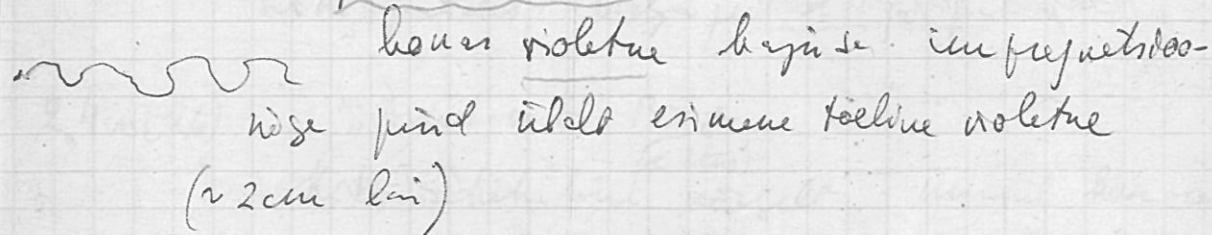 konar violetne hajusa impregnatsioo-
niga pind üldt esimene tõeline violetne
(~2cm lai)